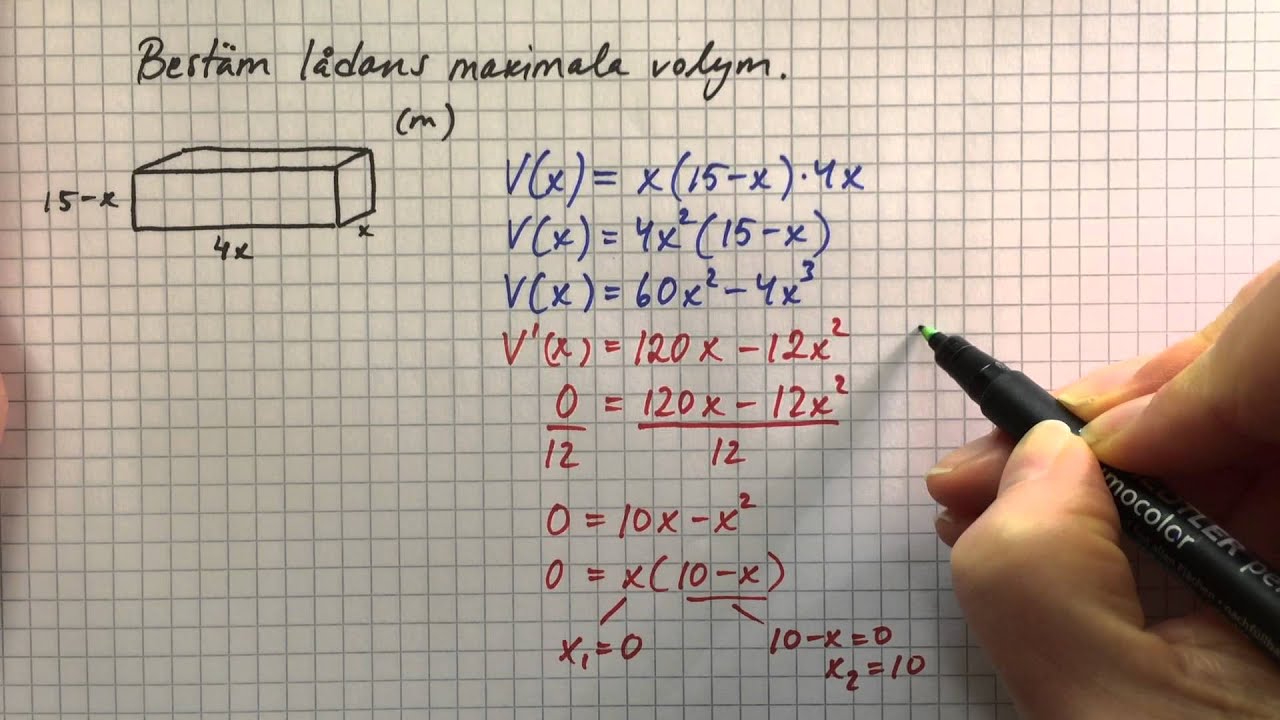 Bestäm lådans maximala volym.
(m)
15-x
4x
x
V(x) = x(15-x)·4x
V(x) = 4x²(15-x)
V(x) = 60x²-4x³
V'(x) = 120x-12x²
0/12 = (120x-12x²)/12
0 = 10x-x²
0 = x(10-x)
x₁=0
10-x=0
x₂=10
mocolor